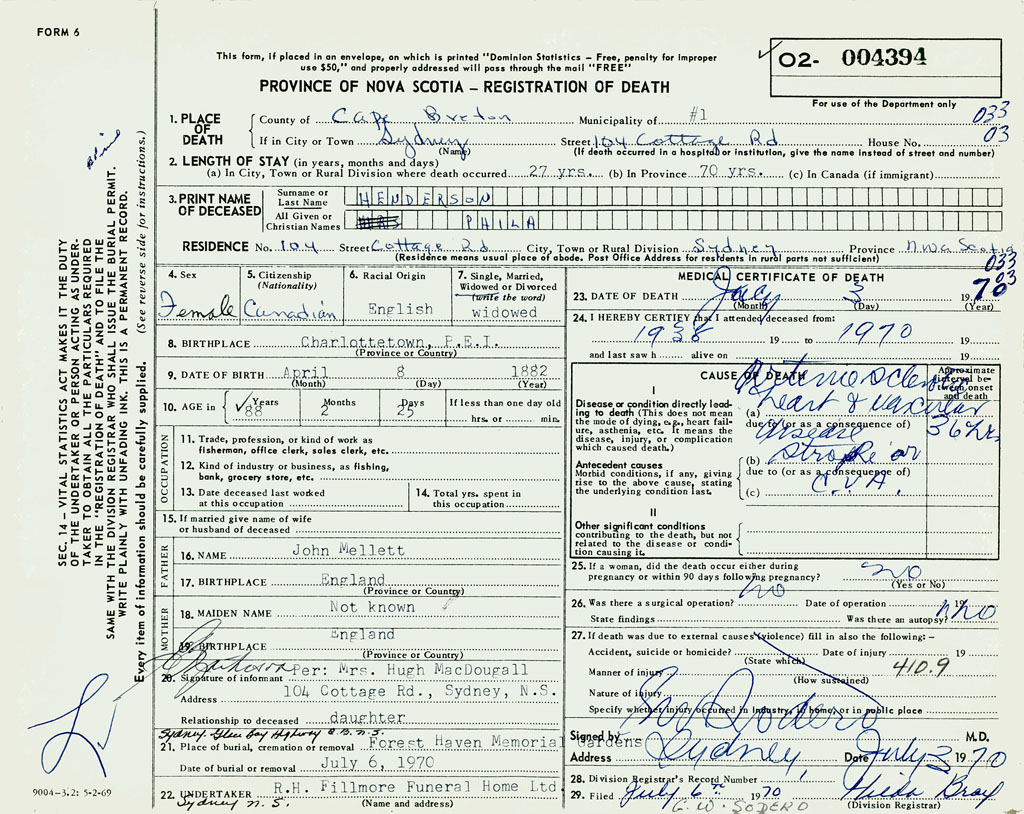 FORM 6
This form, if placed in an envelope, on which is printed "Dominion Statistics – Free, penalty for improper
use $50," and properly addressed will pass through the mail "FREE"
PROVINCE OF NOVA SCOTIA – REGISTRATION OF DEATH
O2- 004394
For use of the Department only
033
03
1. PLACE OF DEATH
County of Cape Breton Municipality of #1
If in City or Town Sydney Street 104 Cottage Rd House No.
(Name) (If death occurred in a hospital or institution, give the name instead of street and number)
2. LENGTH OF STAY (in years, months and days)
(a) In City, Town or Rural Division where death occurred 27 yrs. (b) In Province 70 yrs. (c) In Canada (if immigrant)
3. PRINT NAME OF DECEASED
Surname or Last Name HENDERSON
All Given or Christian Names PHILA
RESIDENCE No. 104 Street Cottage Rd City, Town or Rural Division Sydney Province Nova Scotia
(Residence means usual place of abode. Post Office Address for residents in rural parts not sufficient)
033
03
4. Sex
Female
5. Citizenship
(Nationality)
Canadian
6. Racial Origin
English
7. Single, Married,
Widowed or Divorced
(write the word)
widowed
8. BIRTHPLACE Charlottetown, P.E.I.
(Province or Country)
9. DATE OF BIRTH April 8 1882
(Month) (Day) (Year)
10. AGE in Years Months Days If less than one day old
88 2 25 hrs. or min.
OCCUPATION
11. Trade, profession, or kind of work as
fisherman, office clerk, sales clerk, etc.
12. Kind of industry or business, as fishing,
bank, grocery store, etc.
13. Date deceased last worked
at this occupation
14. Total yrs. spent in
this occupation
15. If married give name of wife
or husband of deceased
FATHER
16. NAME John Mellett
17. BIRTHPLACE England
(Province or Country)
MOTHER
18. MAIDEN NAME Not known
19. BIRTHPLACE England
(Province or Country)
20. Signature of informant Per: Mrs. Hugh MacDougall
Address 104 Cottage Rd., Sydney, N.S.
Relationship to deceased daughter
Sydney Glace Bay Highway C.B. N.S.
21. Place of burial, cremation or removal Forest Haven Memorial Gardens
Date of burial or removal July 6, 1970
22. UNDERTAKER R.H. Fillmore Funeral Home Ltd.
Sydney N.S. (Name and address)
MEDICAL CERTIFICATE OF DEATH
23. DATE OF DEATH July 3 1970
(Month) (Day) (Year)
24. I HEREBY CERTIFY that I attended deceased from:
1938 19 to 1970 19
and last saw h alive on 19
CAUSE OF DEATH
Approximate
interval be-
tween onset
and death
I
Disease or condition directly lead-
ing to death (This does not mean
the mode of dying, e.g., heart fail-
ure, asthenia, etc. It means the
disease, injury, or complication
which caused death.)
(a) heart & vascular
due to (or as a consequence of)
disease
36 hrs
Antecedent causes
Morbid conditions, if any, giving
rise to the above cause, stating
the underlying condition last.
(b) stroke or
due to (or as a consequence of)
(c) C.V.A.
II
Other significant conditions
contributing to the death, but not
related to the disease or condi-
tion causing it.
25. If a woman, did the death occur either during
pregnancy or within 90 days following pregnancy? No
(Yes or No)
26. Was there a surgical operation? no Date of operation 19
State findings Was there an autopsy? no
27. If death was due to external causes (violence) fill in also the following: –
Accident, suicide or homicide? Date of injury 19
(State which)
Manner of injury 410.9
(How sustained)
Nature of injury
Specify whether injury occurred in industry, in home, or in public place
Signed by M.D.
Address Sydney, Date July 3 1970
28. Division Registrar's Record Number
29. Filed July 6th 1970 Hilda Bray
G. W. SODERO (Division Registrar)
SEC. 14 – VITAL STATISTICS ACT MAKES IT THE DUTY
OF THE UNDERTAKER OR PERSON ACTING AS UNDER-
TAKER TO OBTAIN ALL THE PARTICULARS REQUIRED
IN THE "REGISTRATION OF DEATH" AND TO FILE THE
SAME WITH THE DIVISION REGISTRAR WHO SHALL ISSUE THE BURIAL PERMIT.
WRITE PLAINLY WITH UNFADING INK. THIS IS A PERMANENT RECORD.
Every item of information should be carefully supplied. (See reverse side for instructions.)
9004-3.2: 5-2-69